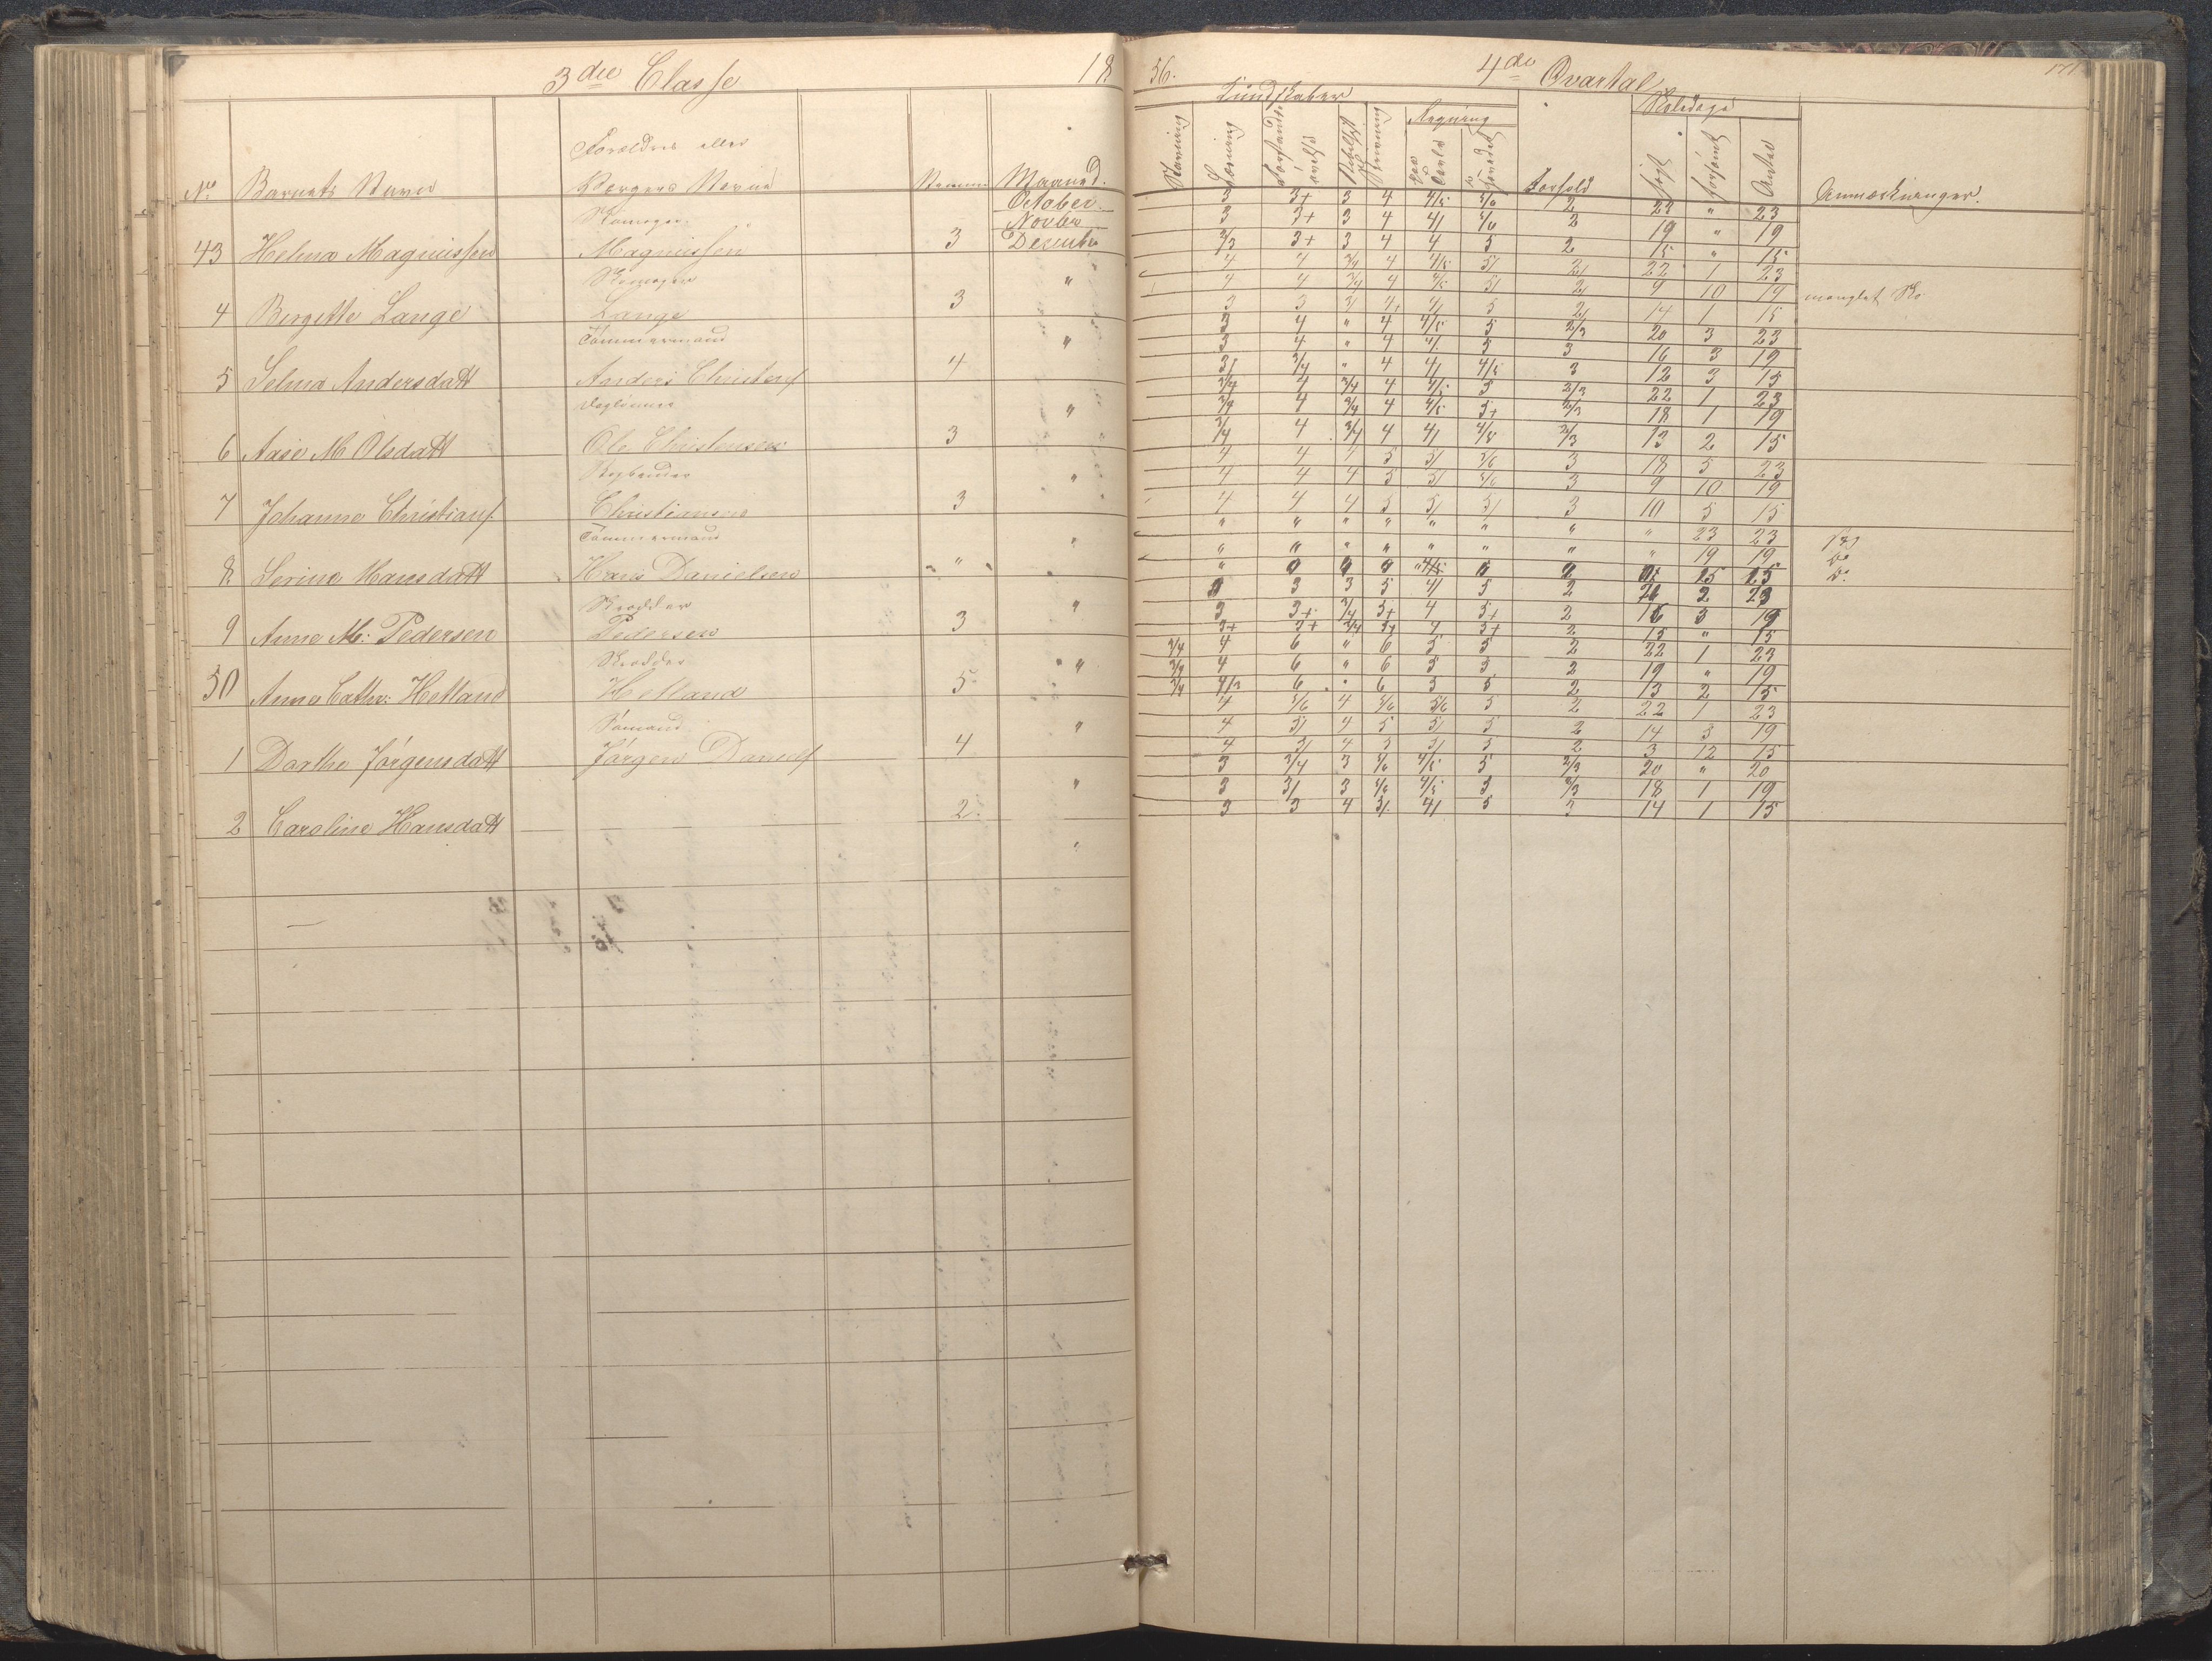 3die Classe 18
56. 4de Qvartal 171
Kundskaber Skoledage
Regning
Forældres eller
No Barnets Navn Værgers Navne Maaned.
Stavning Læsning Skrivning Tavle Hovedet Forhold søgt forsømt Antal Anmærkninger.
October.
Novber
Skomager
43 Helma Magnussen Magnussen 3 Decembr
Skomager
4 Birgitte Lange Lange 3 "
Tømmermand
5 Selma Andersdatt Anders Christens 4 "
Daglønner
6 Aase M Olsdatt Ole Christensen 3 "
7 Johanne Christians. Christiansen 3 "
Tømmermand
8 Serine Hansdatt Hans Danielsen " "
Skrædder
9 Anne M: Pedersen Pedersen 3 "
Skrædder
50 Anne Cathr: Hetland Hetland 5 "
Sømand
1 Dorthe Jørgensdatt Jørgen Daniels 4 "
2 Caroline Hansdatt 2. "
3 3+ 3 4 4/5 5/6 2 23 " 23
3 3+ 3 4 4/ 5/6 2 19 " 19
2/3 3+ 3 4 4 5 2 15 " 15
4 4 3/4 4 4/5 5/ 2/ 22 1 23
4 4 3/4 4 4/5 5/ 2/ 9 10 19 manglet Sko
3 3 3/ 4+ 4/ 5 2/ 14 1 15
3 4 " 4 4/5 5 2/3 20 3 23
3 4 " 4 4/ 5 3 16 3 19
3/ 3/4 " 4 4/ 4/5 3 12 3 15
3/4 4 3/4 4 4/5 5 2/3 22 1 23
3/4 4 3/4 4 4/5 5+ 2/3 18 1 19
3/4 4 3/4 4 4/ 4/5 2/3 13 2 15
4 4 4 5 5/ 5/6 3 18 5 23
4 4 4 5 5/ 5/6 3 9 10 19
4 4 4 5 5/ 5/ 3 10 5 15
" " " " " " " " 23 23
" " " " " " " " 19 19 Do
" 15 15 Do
3 3 3 5 4/ 5 2 21 2 23
3 3+ 3/4 5+ 4 5+ 2 16 3 19
3+ 3+ 3/4 5+ 4 5+ 2 15 " 15
3/4 4 6 " 6 5 5 2 22 1 23
3/4 4 6 " 6 5 5 2 19 " 19
3/4 4/3 6 " 6 5 5 2 13 2 15
4 5/6 4 5/6 5/6 5 2 22 1 23
4 5/ 4 5 5/ 5 2 14 5 19
4 5/ 4 5 5/ 5 2 3 12 15
3 3/4 3 5/6 4/5 5 2/3 20 " 20
3 3/ 3 5/6 4/5 5 2/3 18 1 19
3 3 4 5/. 4/ 5 3 14 1 15